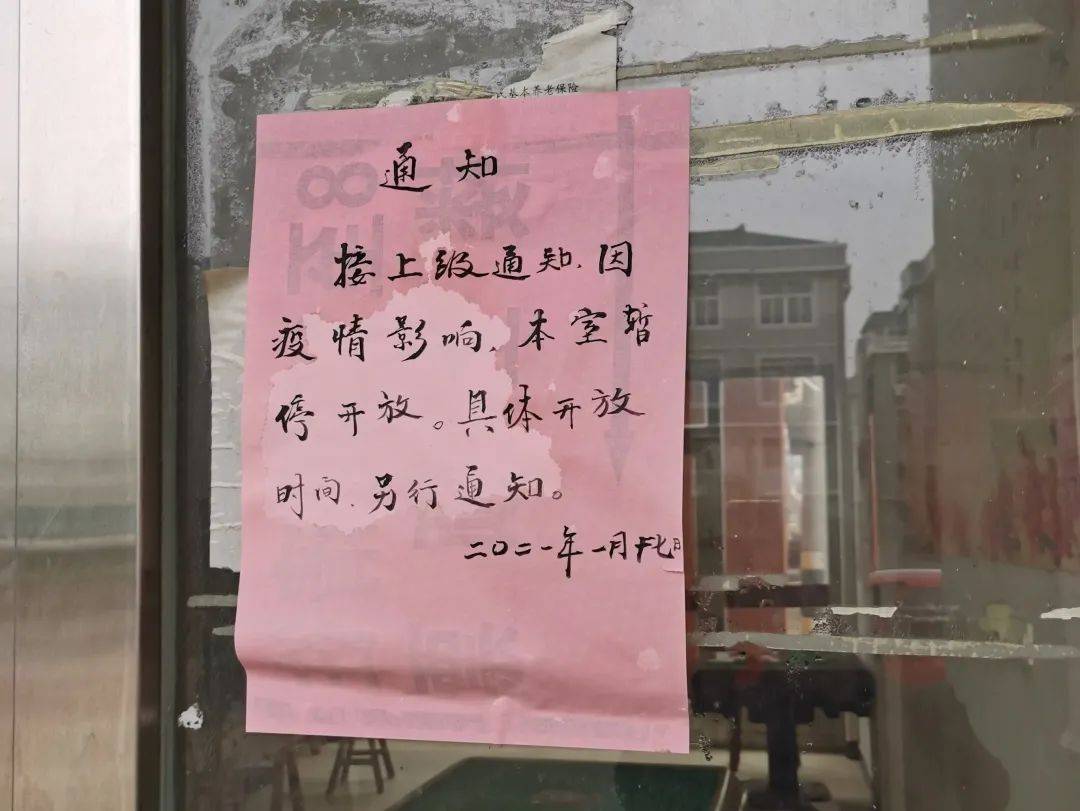 民基本养老保险
通知
接上级通知，因
疫情影响，本室暂
停开放。具体开放
时间，另行通知。
二〇二一年一月廿七日